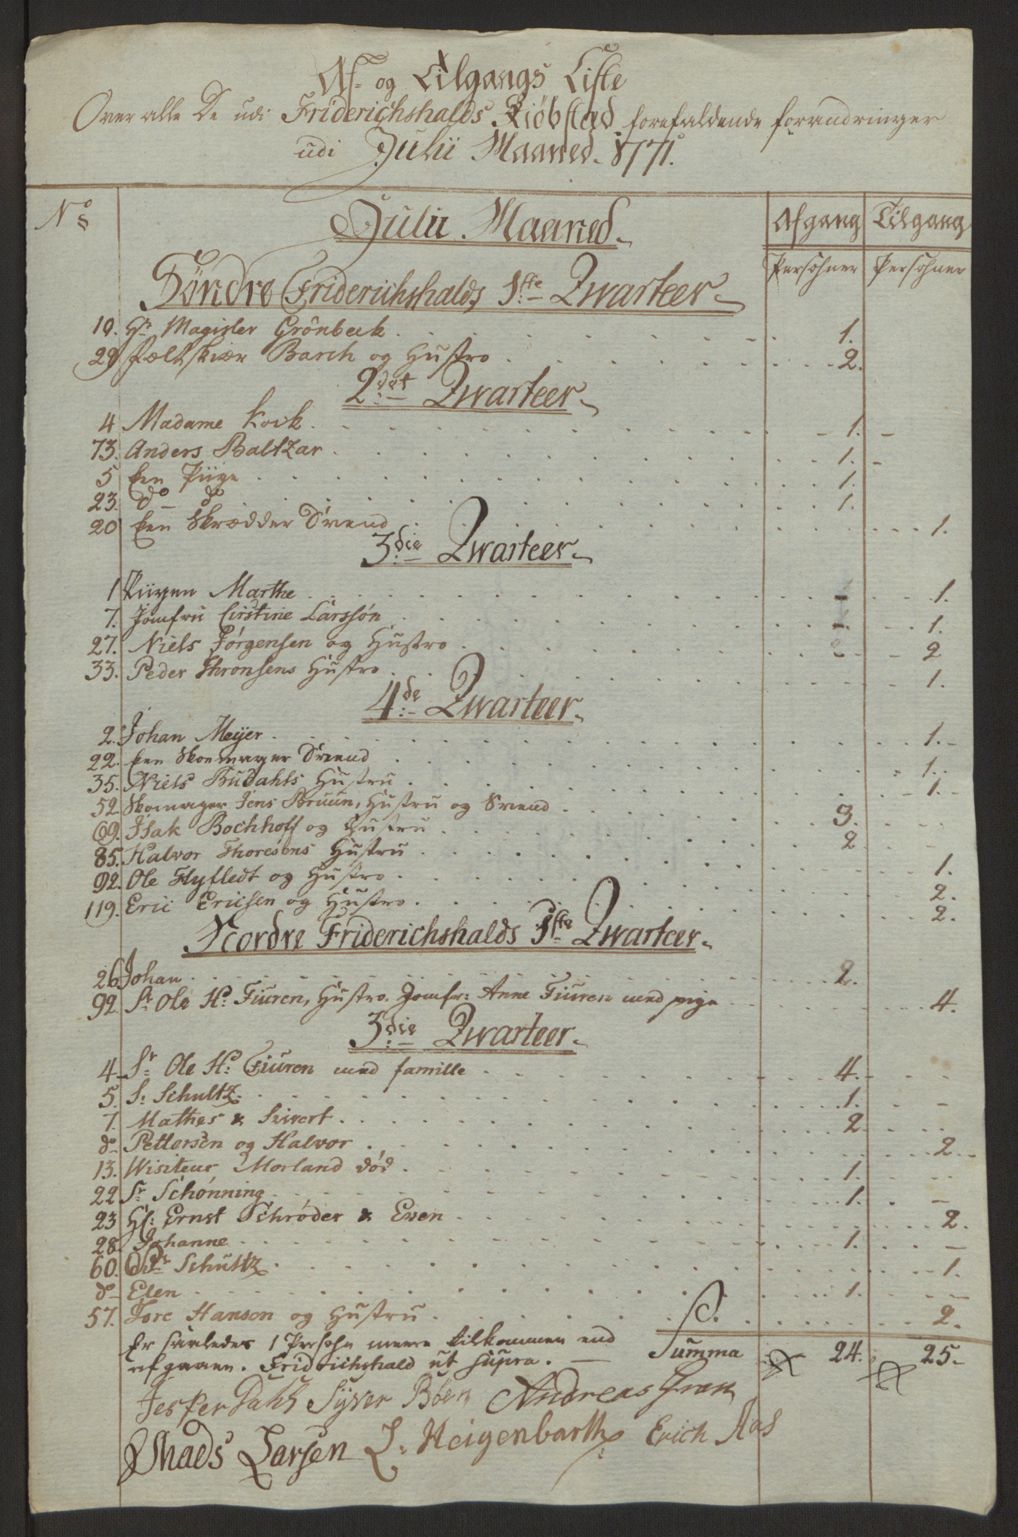 Af- og Tilgangs Liste
Over alle De udi Friderichshalds Kiöbstad forefaldende forandringer
udi Julii Maaned 1771.
No
Julii Maaned
Afgang Tilgang
Persohner Persohner
Söndre Friderichshalds 1ste Qvarteer
10. Hr Magister Grönbeck 1.
29 Feltskiær Barch og Hustro 2.
2det Qvarteer
4 Madame Kock 1.
73. Anders Baltzar 1.
5 Een Piige 1.
23. do do 1.
20 Een Skrædder Svend 1.
3die Qvarteer
1 Piigen Marthe 1.
7. Jomfru Cirstine Larssøn 1.
27. Niels Jørgensen og Hustro 2
33. Peder Thronsens Hustro 1.
4de Qvarteer
2. Johan Meÿer 1.
22. Een Skoemager Svend 1.
35. Niels Budahls Hustru 1.
52 Skomager Jens Bruun, Hustru og Svend 3.
69. Isak Bochhoff og Hustru 2
85. Halvor Thoresøns Hustru 1.
92. Ole Flyfledt og Hustro 2.
119. Eric Ericsen og Hustro 2.
Nordre Friderichshalds 1ste Qvarteer
26 Johan 2.
92 Sr Ole H: Fiuren, Hustro. Jomfr: Anne Fiuren med pige 4.
3die Qvarteer
4 Sr Ole H: Fiuren med familie 4.
5. Sr Schultz 1.
7 Mathes & Sivert 2
do Pettersen og Halvor 2
13. Wisiteur Morland død 1.
22 Sr Schønning 1.
23 Hr: Ernst Schrøder & Even 2.
28. Johanne 1.
60. Schultz 1.
do Elen 1.
57. Tore Hanson og Hustru 2.
Er saaledes 1 Persohn meere tilkommen end
afgaaen. Fridrichshald ut supra. Summa 24. 25.
Jesper Dahl Syver Böen Andreas Gram
Mads Larsen L. Heigenbarth Erich Aas